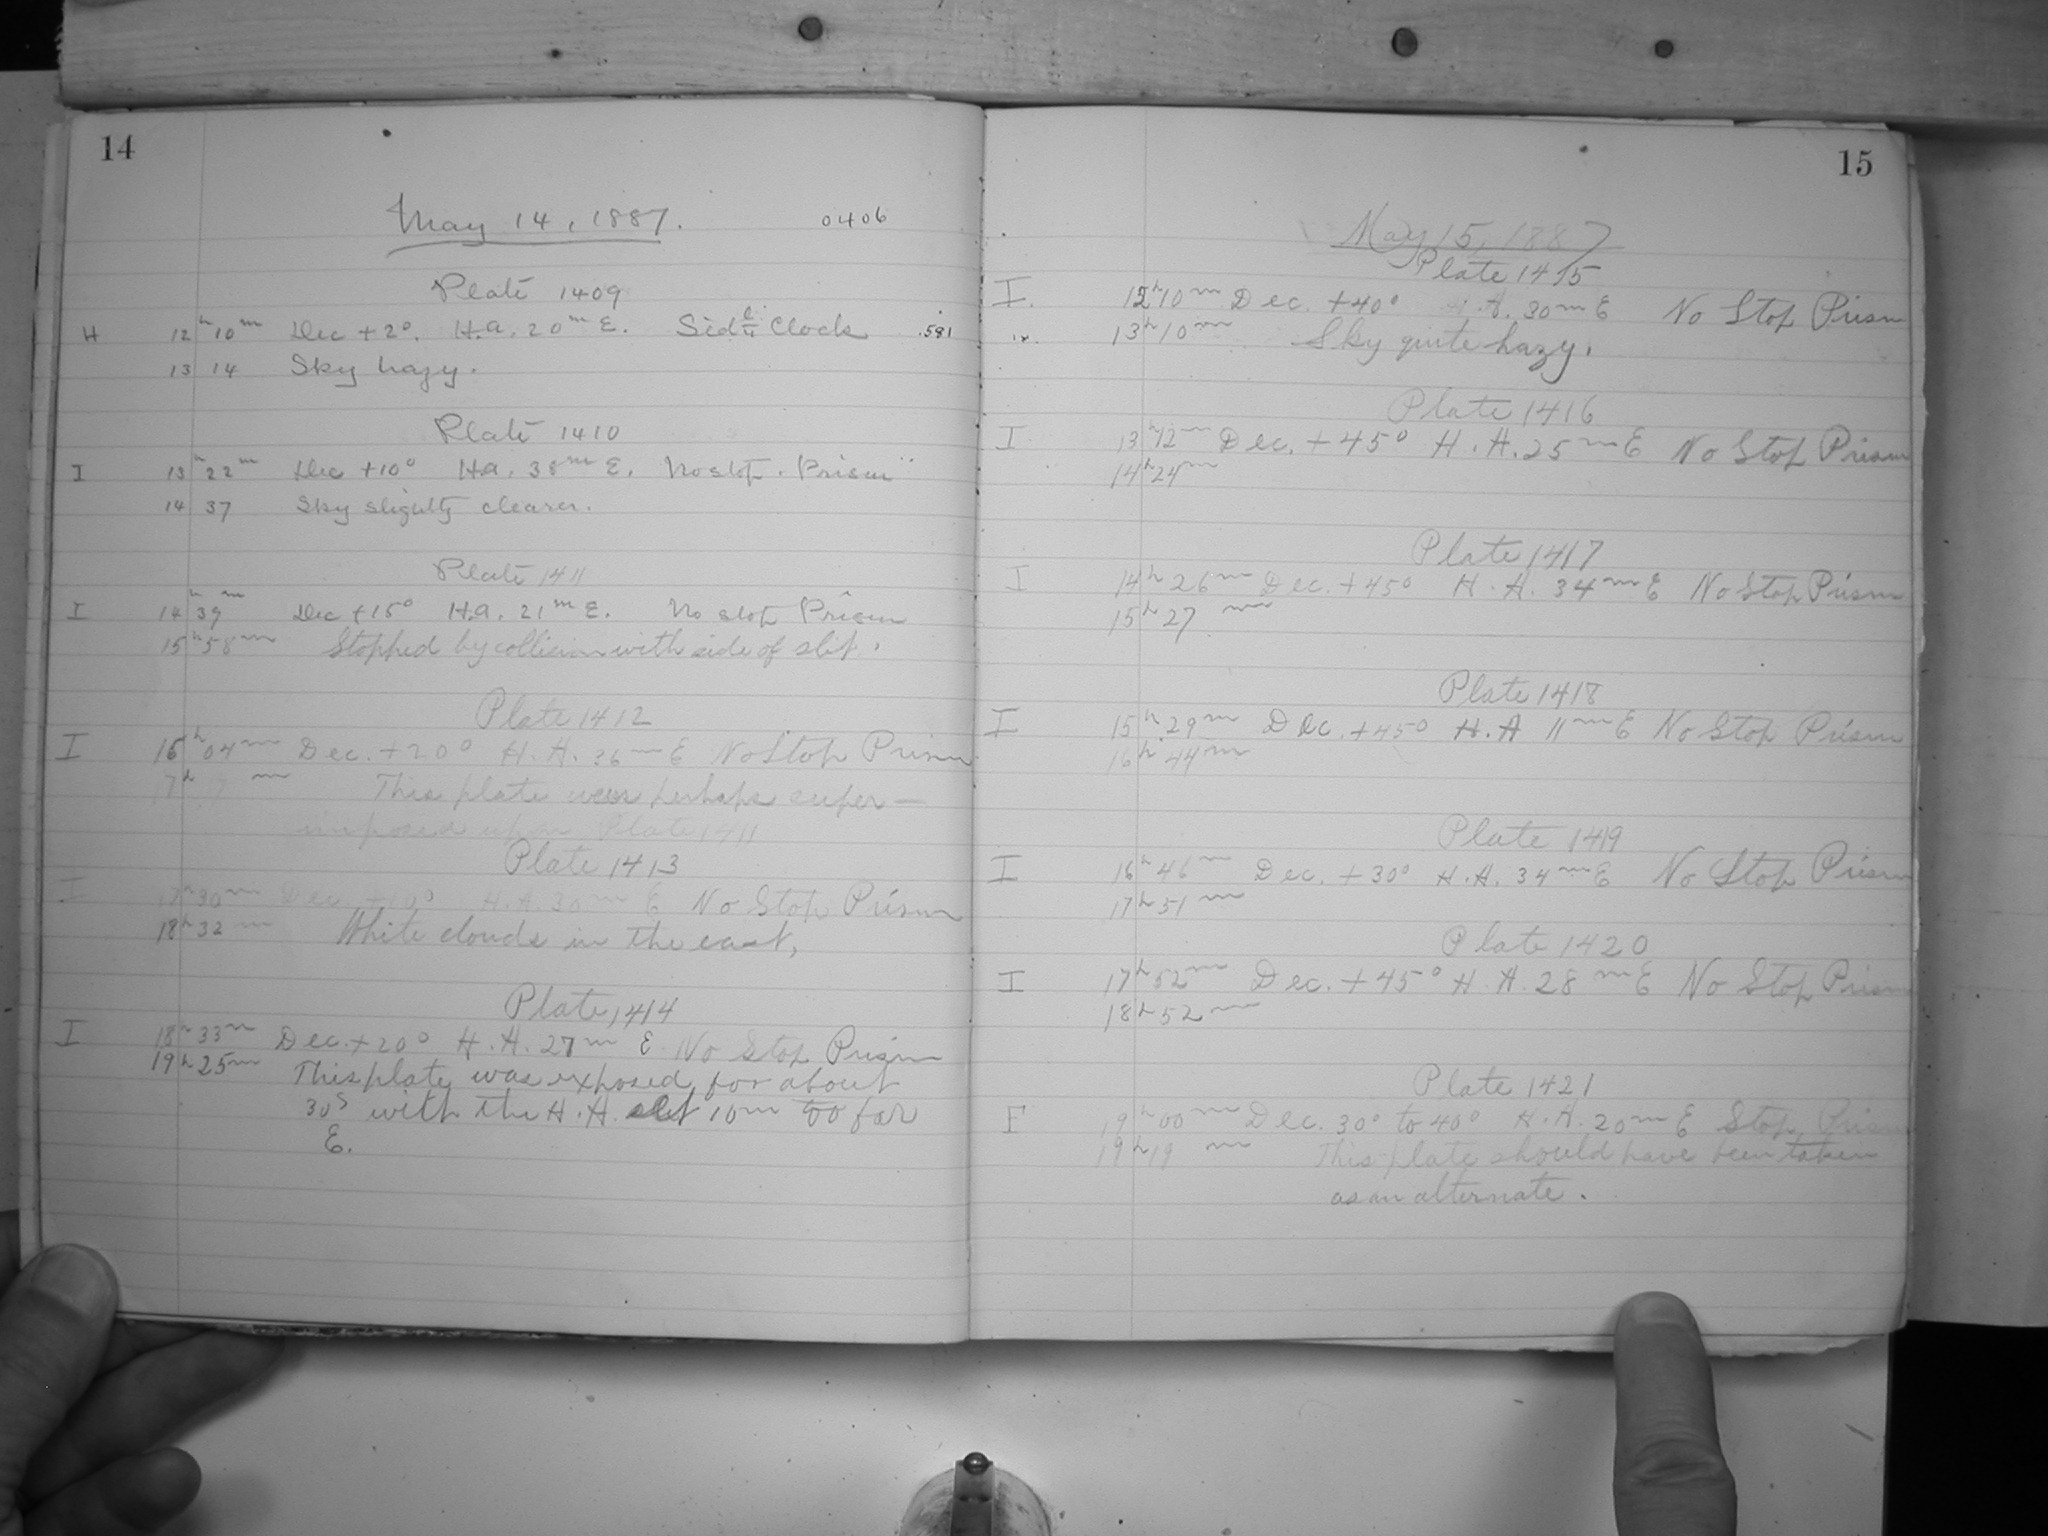 14
May 14, 1887. 0406
Plate 1409
H 12h 10m Dec +2°. H.a. 20m E. Sidl Clock .581
13 14 Sky hazy.
Plate 1410
I 13h 22m Dec +10° H.a. 38m E. No stop. Prism
14 37 Sky slightly clearer.
Plate 1411
I 14h 39m Dec +15° H.a. 21m E. No stop Prism
15h 58m Stopped by collision with side of slit.
Plate 1412
I 16h 04m Dec. +20° H.A. 36m E No Stop Prism
17h m This plate was perhaps super-
imposed upon Plate 1411
Plate 1413
I 17h 30m Dec +10° H.A. 30m E No Stop Prism
18h 32m White clouds in the east,
Plate 1414
I 18h 33m Dec. +20° H.A. 27m E No Stop Prism
19h 25m This plate was exposed for about
30s with the H.A. set 10m too far
E.
15
May 15, 1887
Plate 1415
I. 12h 10m Dec. +40° H.A. 30m E No Stop Prism
13h 10m Sky quite hazy.
Plate 1416
I 13h 12m Dec. +45° H.A. 25m E No Stop Prism
14h 24m
Plate 1417
I 14h 26m Dec. +45° H.A. 34m E No Stop Prism
15h 27m
Plate 1418
I 15h 29m Dec. +45° H.A 11m E No Stop Prism
16h 44m
Plate 1419
I 16h 46m Dec. +30° H.A. 34m E No Stop Prism
17h 51m
Plate 1420
I 17h 52m Dec. +45° H.A. 28m E No Stop Prism
18h 52m
Plate 1421
F 19h 00m Dec. 30° to 40° H.A. 20m E Stop Prism
19h 19m This plate should have been taken
as an alternate.